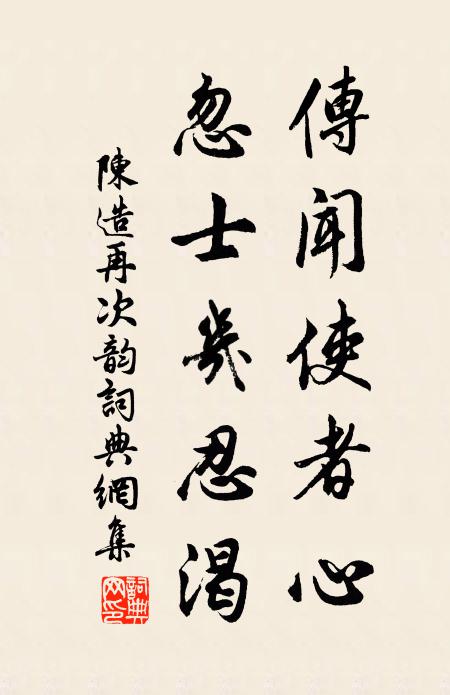 傳聞使者心
忽士幾忍渴
陳造再次韵詞典網集
詞典網印